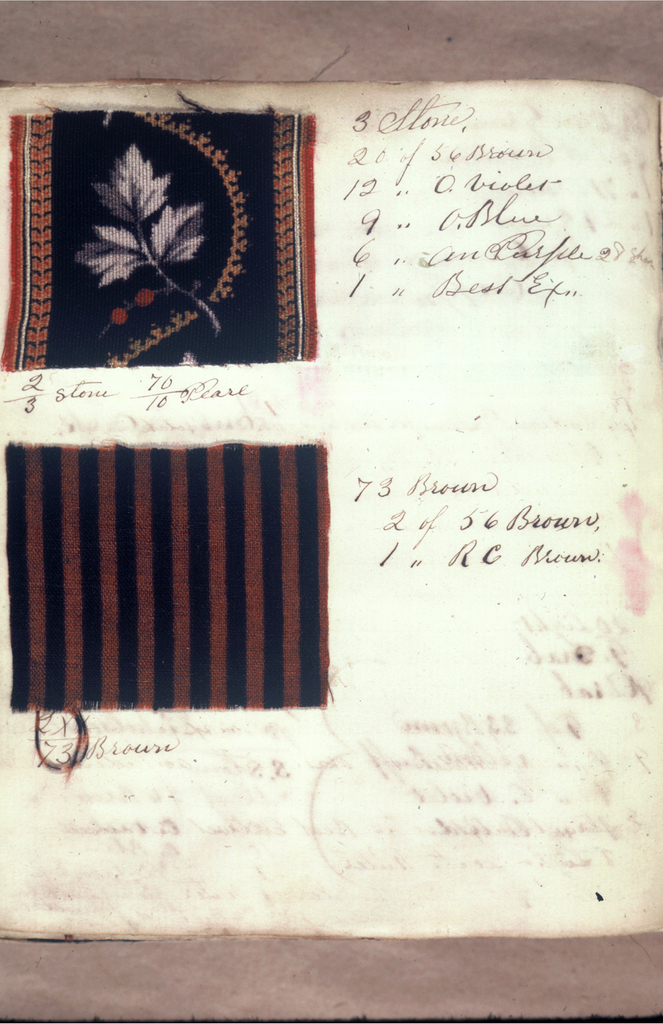 3 Stone.
20 of 56 Brown
12 „ O. Violet
9 „ O. Blue
6 „ An Purple 28
1 „ Best Ex„
2/3 Stone 70/10
73 Brown
2 of 56 Brown,
1 „ RC Brown.
73 Brown